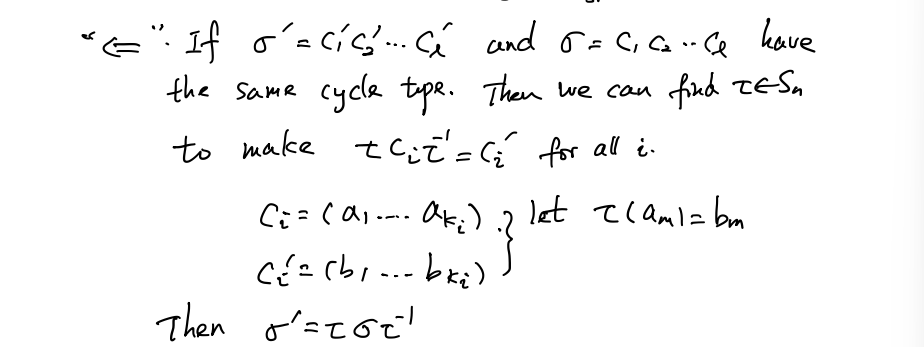 "⇐". If σ' = C₁'C₂'... Cℓ' and σ = C₁ C₂ .. Cℓ have
the same cycle type. Then we can find τ∈Sₙ
to make τCᵢτ⁻¹ = Cᵢ' for all i.
Cᵢ = (a₁ .... a_kᵢ) } let τ(aₘ) = bₘ
Cᵢ' = (b₁ ... b_kᵢ)
Then σ' = τστ⁻¹